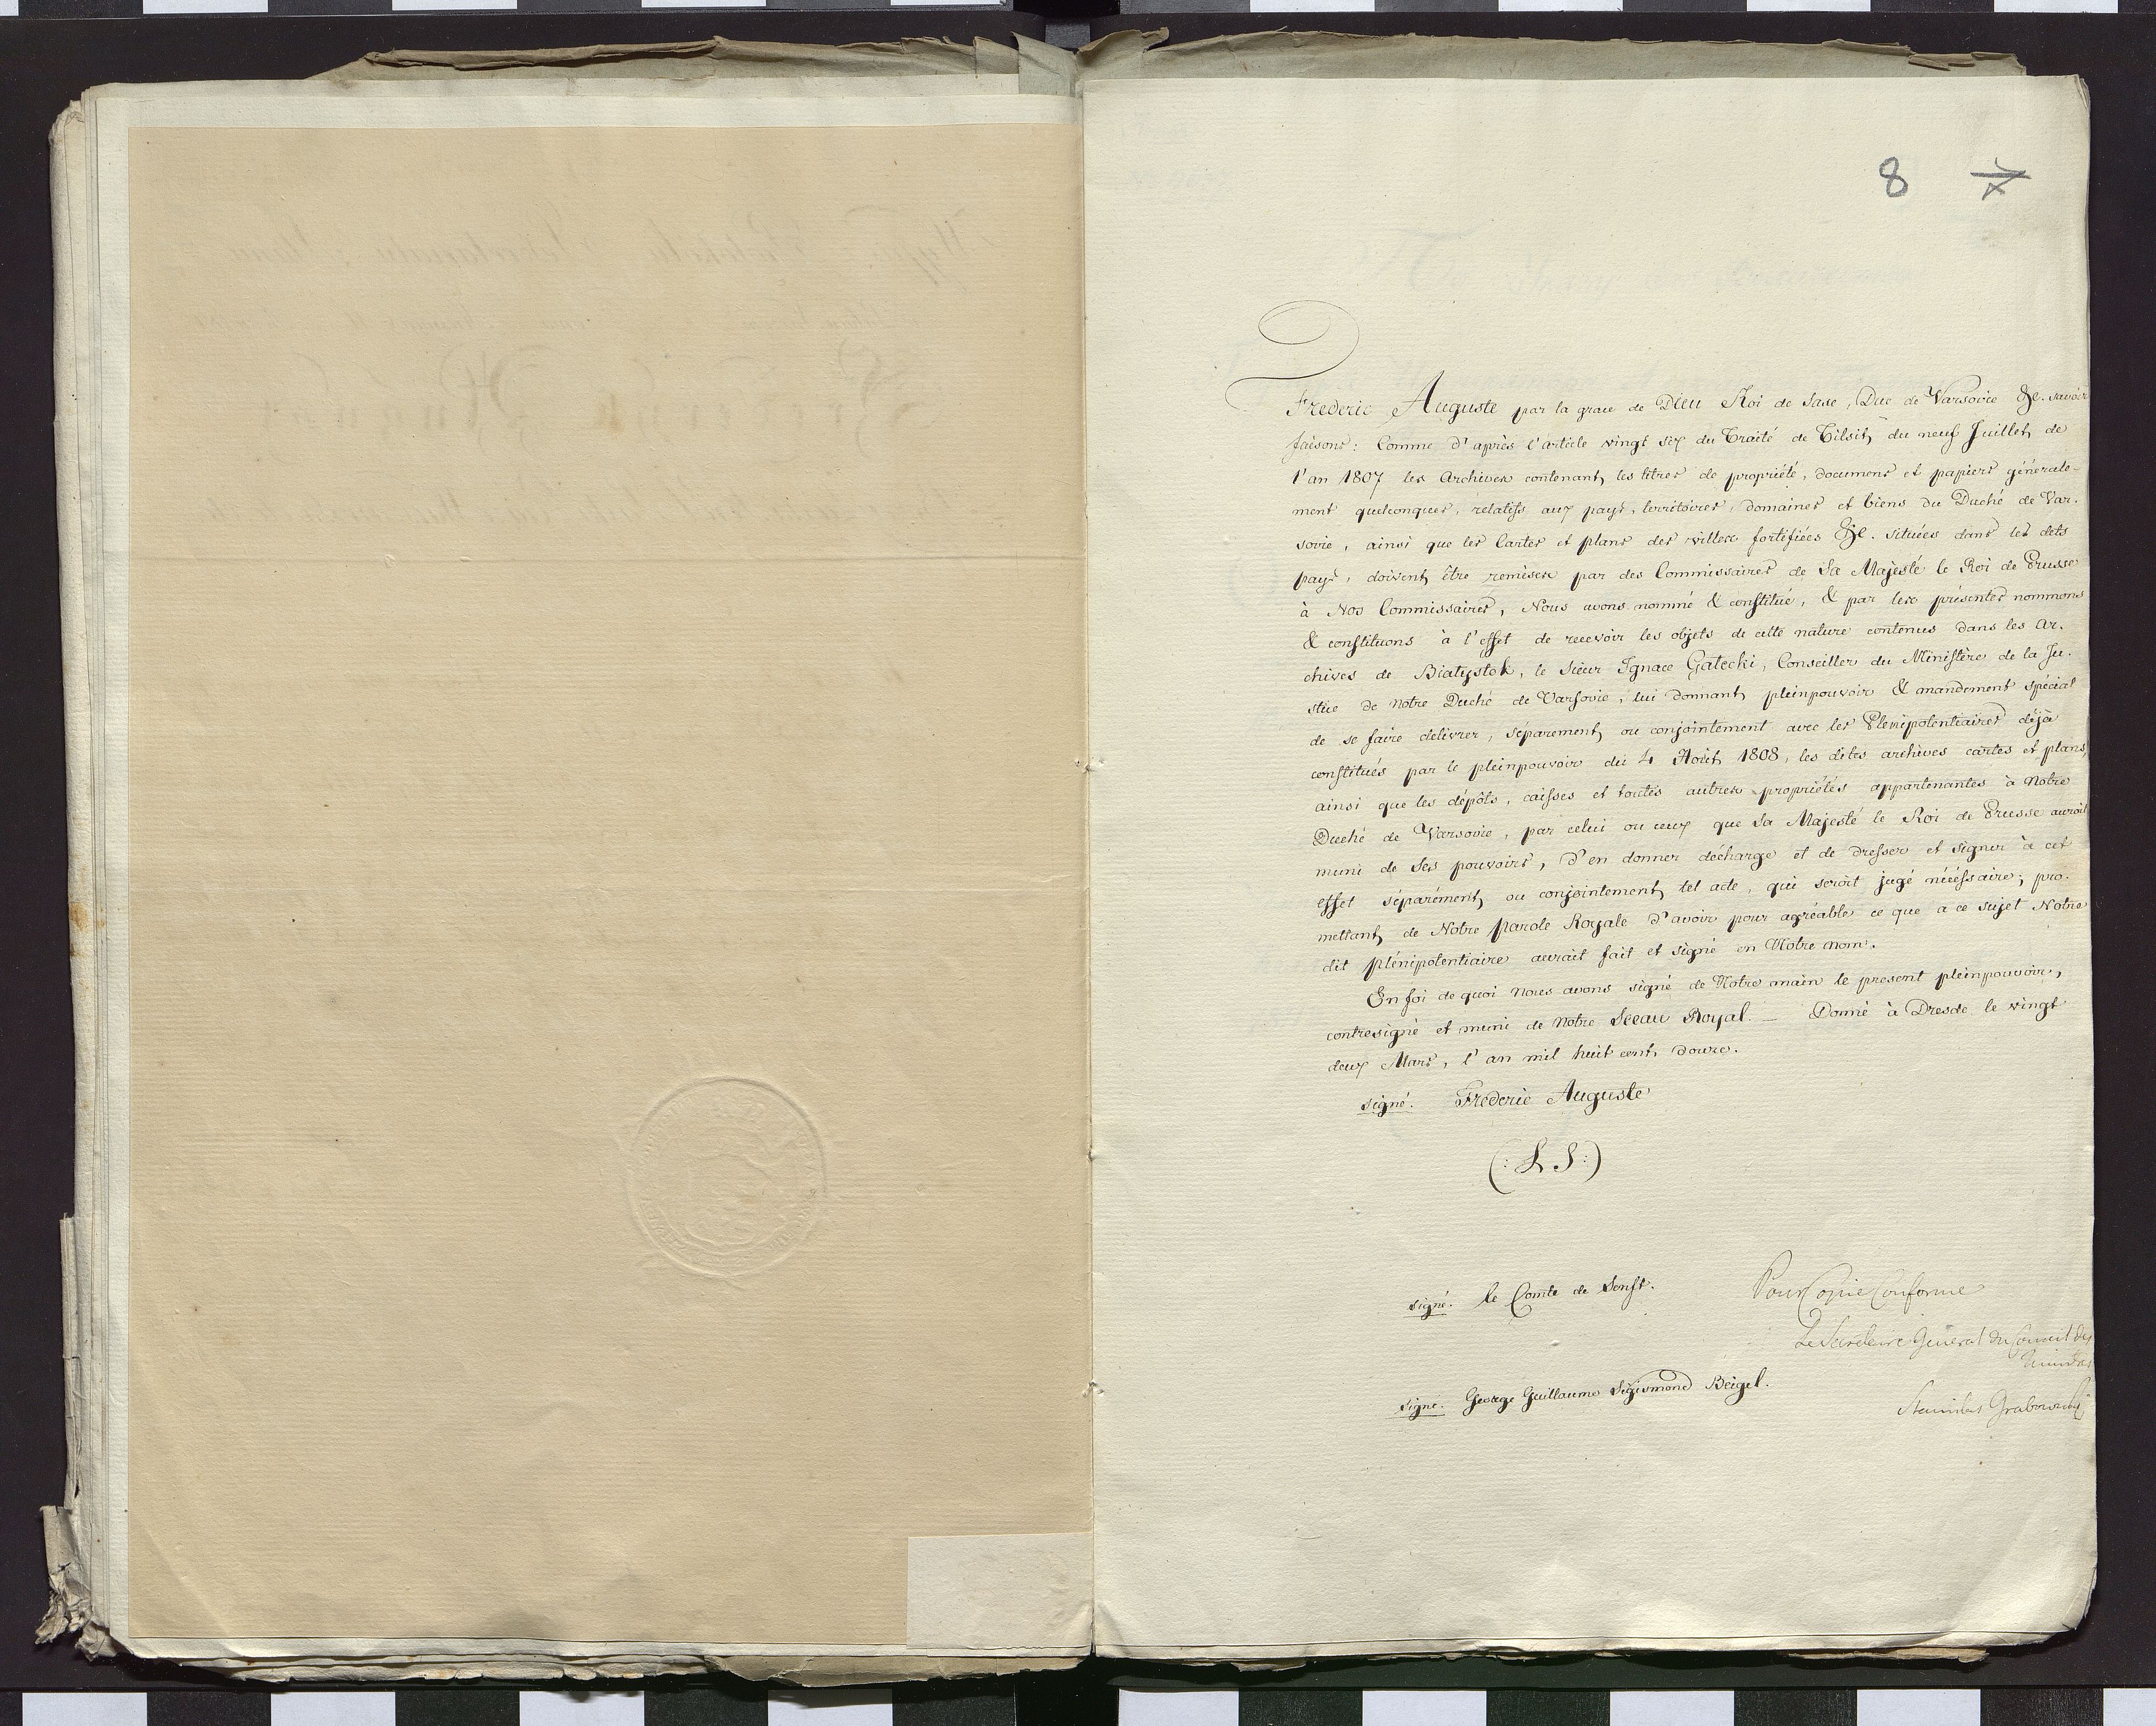 8 7
Frederic Auguste par la grace de Dieu Roi de Saxe, Duc de Varsovie &c. savoir
faisons: Comme d'après l'article vingt six du Traité de Tilsit, du neuf Juillet de
l'an 1807 les Archives contenant les titres de propriété, documens et papiers générale-
ment quelconques, relatifs aux pays, territoires, domaines et biens du Duché de Var-
sovie, ainsi que les Cartes et plans des villes fortifiées &c. situées dans les dits
pays, doivent être remises par des Commissaires de Sa Majesté le Roi de Prusse
à Nos Commissaires, Nous avons nommé & constitué, & par les présentes nommons
& constituons à l'effet de recevoir les objets de cette nature contenus dans les Ar-
chives de Białystok, le Sieur Ignace Gałecki, Conseiller du Ministère de la Ju-
stice de Notre Duché de Varsovie, lui donnant pleinpouvoir & mandement spécial
de se faire delivrer, séparement ou conjointement avec les Plenipotentiaires déjà
constitués par le pleinpouvoir du 4 Août 1808, les dites archives cartes et plans
ainsi que les dépôts, caisses et toutes autres propriétés appartenantes à Notre
Duché de Varsovie, par celui ou ceux que Sa Majesté le Roi de Prusse auroit
muni de Ses pouvoirs, d'en donner décharge et de dresser et signer à cet
effet séparément ou conjointement tel acte, qui seroit jugé nécéssaire; pro-
mettant de Notre parole Royale d'avoir pour agréable ce que a ce sujet Notre
dit plénipotentiaire aurait fait et signé en Notre nom.
En foi de quoi Nous avons signé de Notre main le present pleinpouvoir,
contresigné et muni de Notre Sceau Royal — Donné à Dresde le vingt
deux Mars, l'an mil huit cent douze.
signé. Fréderic Auguste
(: L S :)
signé. le Comte de Senft.
Pour Copie Conforme
Le Secretaire Général du Conseil des
Ministres
signé. George Guillaume Sigismond Beigel.
Stanislas Grabowski